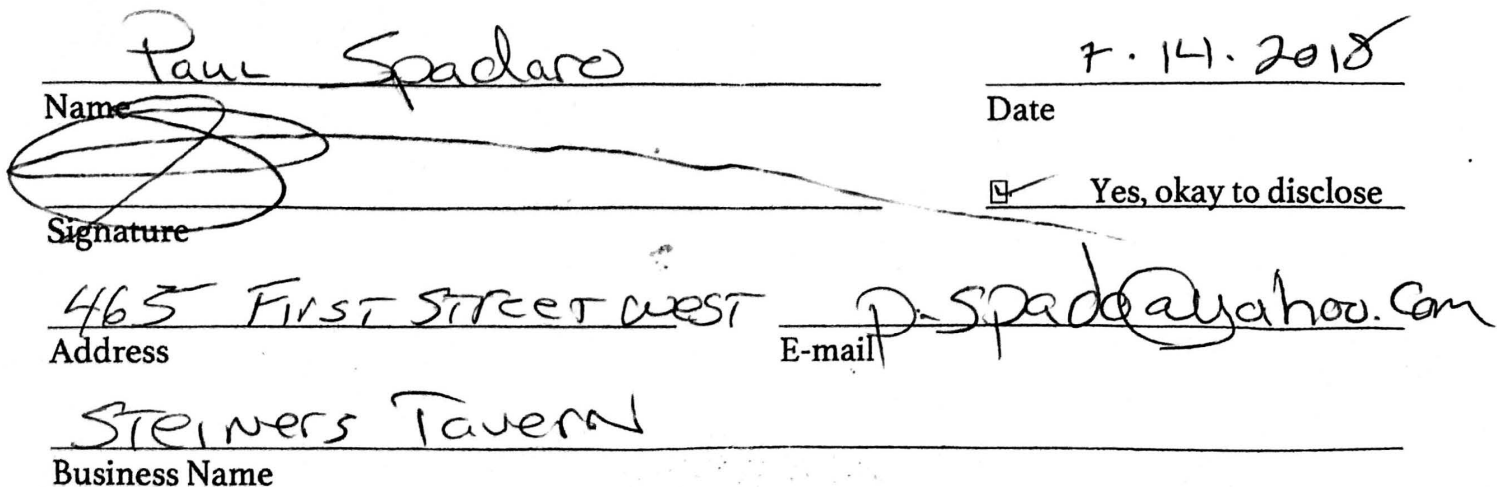 Paul Spadaro 7.14.2018
Name Date
Yes, okay to disclose
Signature
465 First Street West p-spado@yahoo.com
Address E-mail
Steiners Tavern
Business Name